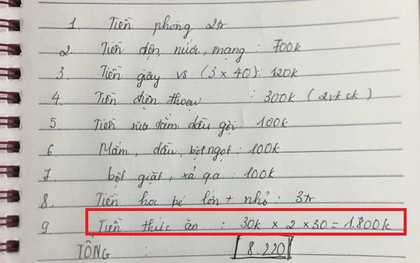 1. Tiền phòng 2tr
2. Tiền điện, nước, mạng : 700k
3 Tiền giấy vs (3 x 40): 120k
4. Tiền điện thoại : 300k (2vk ck)
5 Tiền sữa tắm dầu gội : 100k
6 Mắm, dầu, bột ngọt : 100k
7 bột giặt, xả qa : 100k
8. Tiền học bé lớn + nhỏ : 3tr
9 Tiền thức ăn : 30k x 2 x 30 = 1.800k
TỔNG : [8.220]